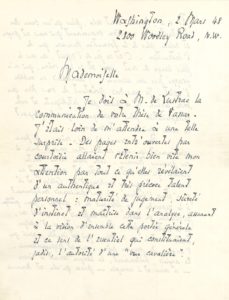 Washington, 2 Mars 48
2800 Woodley Road, N.W.
Mademoiselle
Je dois à M. de Lustrac la
communication de votre thèse de Vassar.
J'étais loin de m'attendre à une telle
surprise. Des pages entr'ouvertes par
courtoisie allaient retenir bien vite mon
attention par tout ce qu'elles révélaient
d'un authentique et très précoce talent
personnel : maturité de jugement, sûreté
d'instinct, et maîtrise dans l'analyse, assurant
à la vision d'ensemble cette portée générale
et ce sens de l'essentiel qui constituaient,
jadis, l'autorité d'une "vue cavalière".